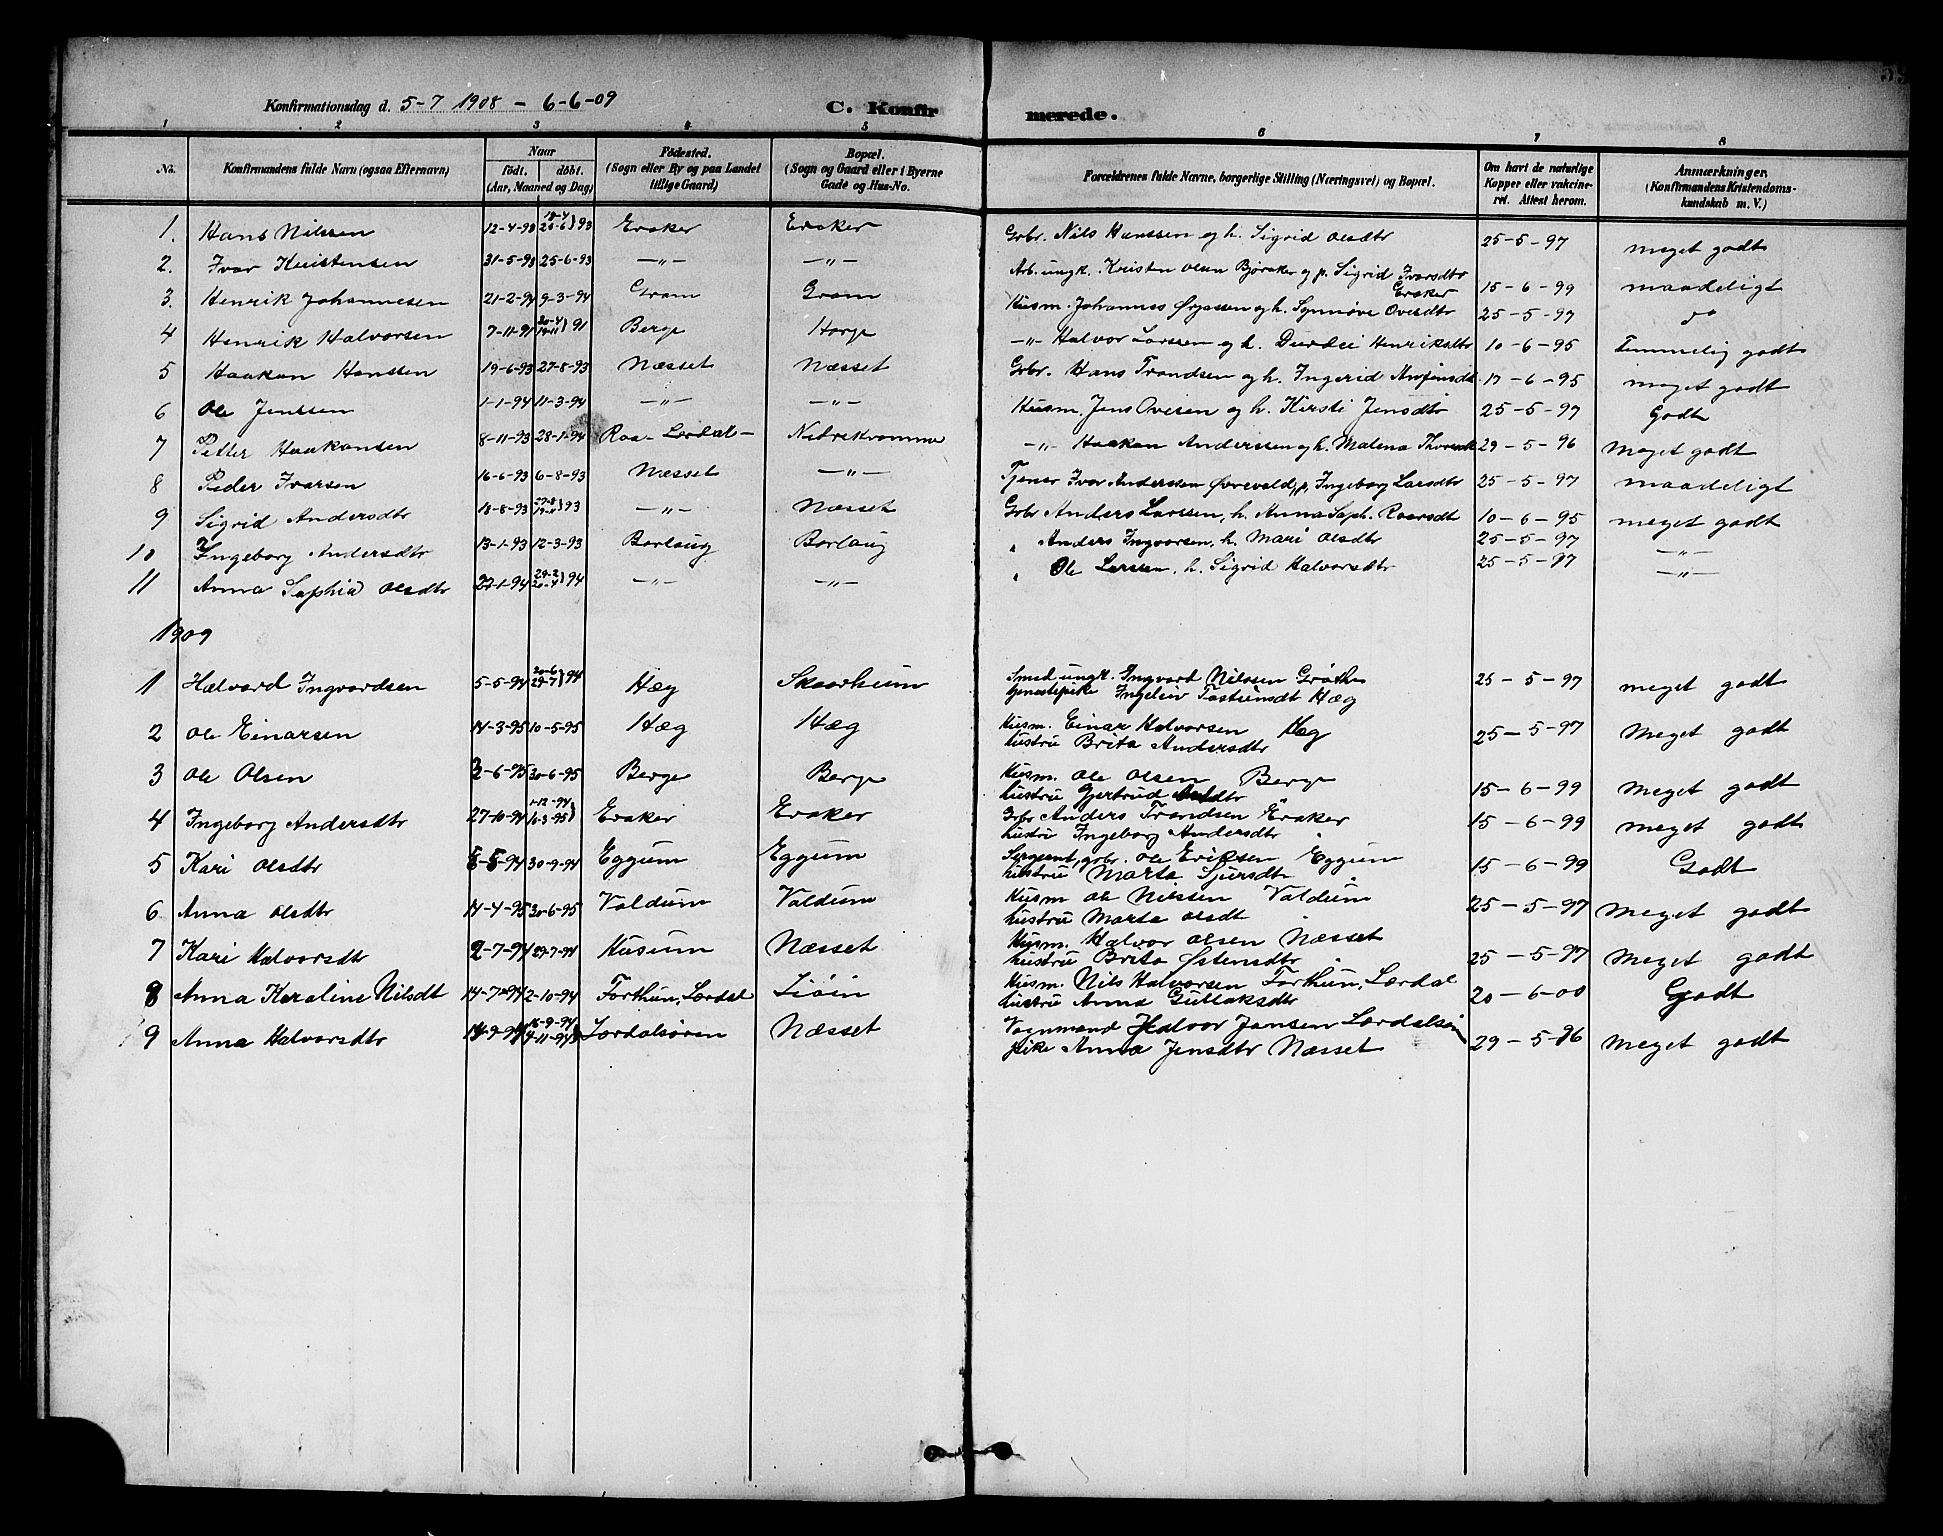 Konfirmationsdag d. 5-7 1908 - 6-6-09 C. Konfirmerede.
1 2 3 4 5 6 7 8
No. Konfirmandens fulde Navn (ogsaa Efternavn) Naar født. døbt. (Aar, Maaned og Dag) Fødested. (Sogn eller By og paa Landet tillige Gaard) Bopæl. (Sogn og Gaard eller i Byerne Gade og Hus-No. Forældrenes fulde Navne, borgerlige Stilling (Næringsvei) og Bopæl. Om havt de naturlige Kopper eller vakcineret. Attest herom. Anmærkninger. (Konfirmandens Kristendomskundskab m. V.)
1. Hans Nilssen 12-4-93 25-6 } 93 Eraker Eraker Grbr. Nils Hanssen og h. Sigrid Olsdtr 25-5-97 meget godt
2. Ivar Kristensen 31-5-93 25-6-93 —"— —"— Arb. ungk. Kristen Olsen Bjøraker og p. Sigrid Ivarsdtr Eraker 15-6-99 maadeligt
3. Henrik Johannesen 21-2-94 9-3-94 Gram Gram Husm. Johannes og h. Synnøve Ovesdtr 25-5-97 do
4 Henrik Halvorsen 7-11-91 } 91 Berge Horge —"— Halvor Larssen og h. Durdei Henriksdtr 10-6-95 Temmelig godt
5 Haakon Hanssen 19-6-93 27-8-93 Næsset Næsset Grbr. Hans Trondsen og h. Ingerid Arnfinsdt 17-6-95 meget godt
6 Ole Jenssen 1-1-94 11-3-94 —"— —"— Husm. Jens Ovesen og h. Kirsti Jensdtr 25-5-97 Godt
7 Petter Haakonsen 8-11-93 28-1-94 Raa - Lærdal - Nedrekvamme —"— Haakon Anderssen og h. Malena 29-5-96 Meget godt
8 Peder Ivarsen 16-6-93 6-8-93 Næsset —"— Tjener Ivar Anderssen Øvrevald, p. Ingeborg Larsdtr 25-5-97 maadeligt
9 Sigrid Andersdtr 18-8-93 27-8 } 93 —"— Næsset Grbr Anders Larssen, h. Anna Soph. Roarsdt 10-6-95 meget godt
10 Ingeborg Andersdtr 13-1-93 12-3-93 Borlaug Borlaug " Anders Ingvarsen, h. Mari Olsdtr 25-5-97 —"—
11 Anna Sophia Olsdtr 22-1-94 20-4 } 94 —"— —"— " Ole Larssen, h. Sigrid Halvorsdtr 25-5-97 —"—
1909
1 Halvard Ingvardsen 5-5-94 20-6 29-7 } 94 Hæg Skaarheim Smed ungk. Ingvard Nilssen
tjenestepike Ingeleiv Tosteinsdt Hæg 25-5-97 meget godt
2 Ole Einarsen 14-3-95 10-5-95 Hæg Hæg Husm. Einar Halvorsen Hæg
hustru Brita Andersdtr 25-5-97 Meget godt
3 Ole Olsen 2-6-95 30-6-95 Berge Berge Husm. Ole Olsen Berge
hustru Gjertrud 15-6-99 Meget godt
4 Ingeborg Andersdtr 27-10-94 1-12-94 10-3-95 } Eraker Eraker Grbr Anders Trondsen Eraker
hustru Ingeborg Andersdtr 15-6-99 meget godt
5 Kari Olsdtr 8-8-94 30-9-94 Eggum Eggum Sergeant, grbr. Ole Eriksen Eggum
hustru Marta Sjursdtr 15-6-99 Godt
6 Anna Olsdtr 14-4-95 30-6-95 Voldum Voldum Husm Ole Nilssen Voldum
hustru Marta Olsdt 25-5-97 Meget godt
7 Kari Halvorsdtr 2-7-94 29-7-94 Husum Næsset Husm. Halvor Olsen Næsset
hustru Brita Østensdtr 25-5-97 Meget godt
8 Anna Karoline Nilsdt 14-7-94 2-10-94 Forthun, Lærdal Husm. Nils Halvorsen Forthun, Lærdal
hustru Anna Gullaksdtr 20-6-00 Godt
9 Anna Halvorsdtr 14-9-94 16-9-94 4-11-94 } Lærdalsøren Næsset Vognmand Halvor Jansen Lærdalsøren
pike Anna Jensdtr Næsset 29-5-96 Meget godt